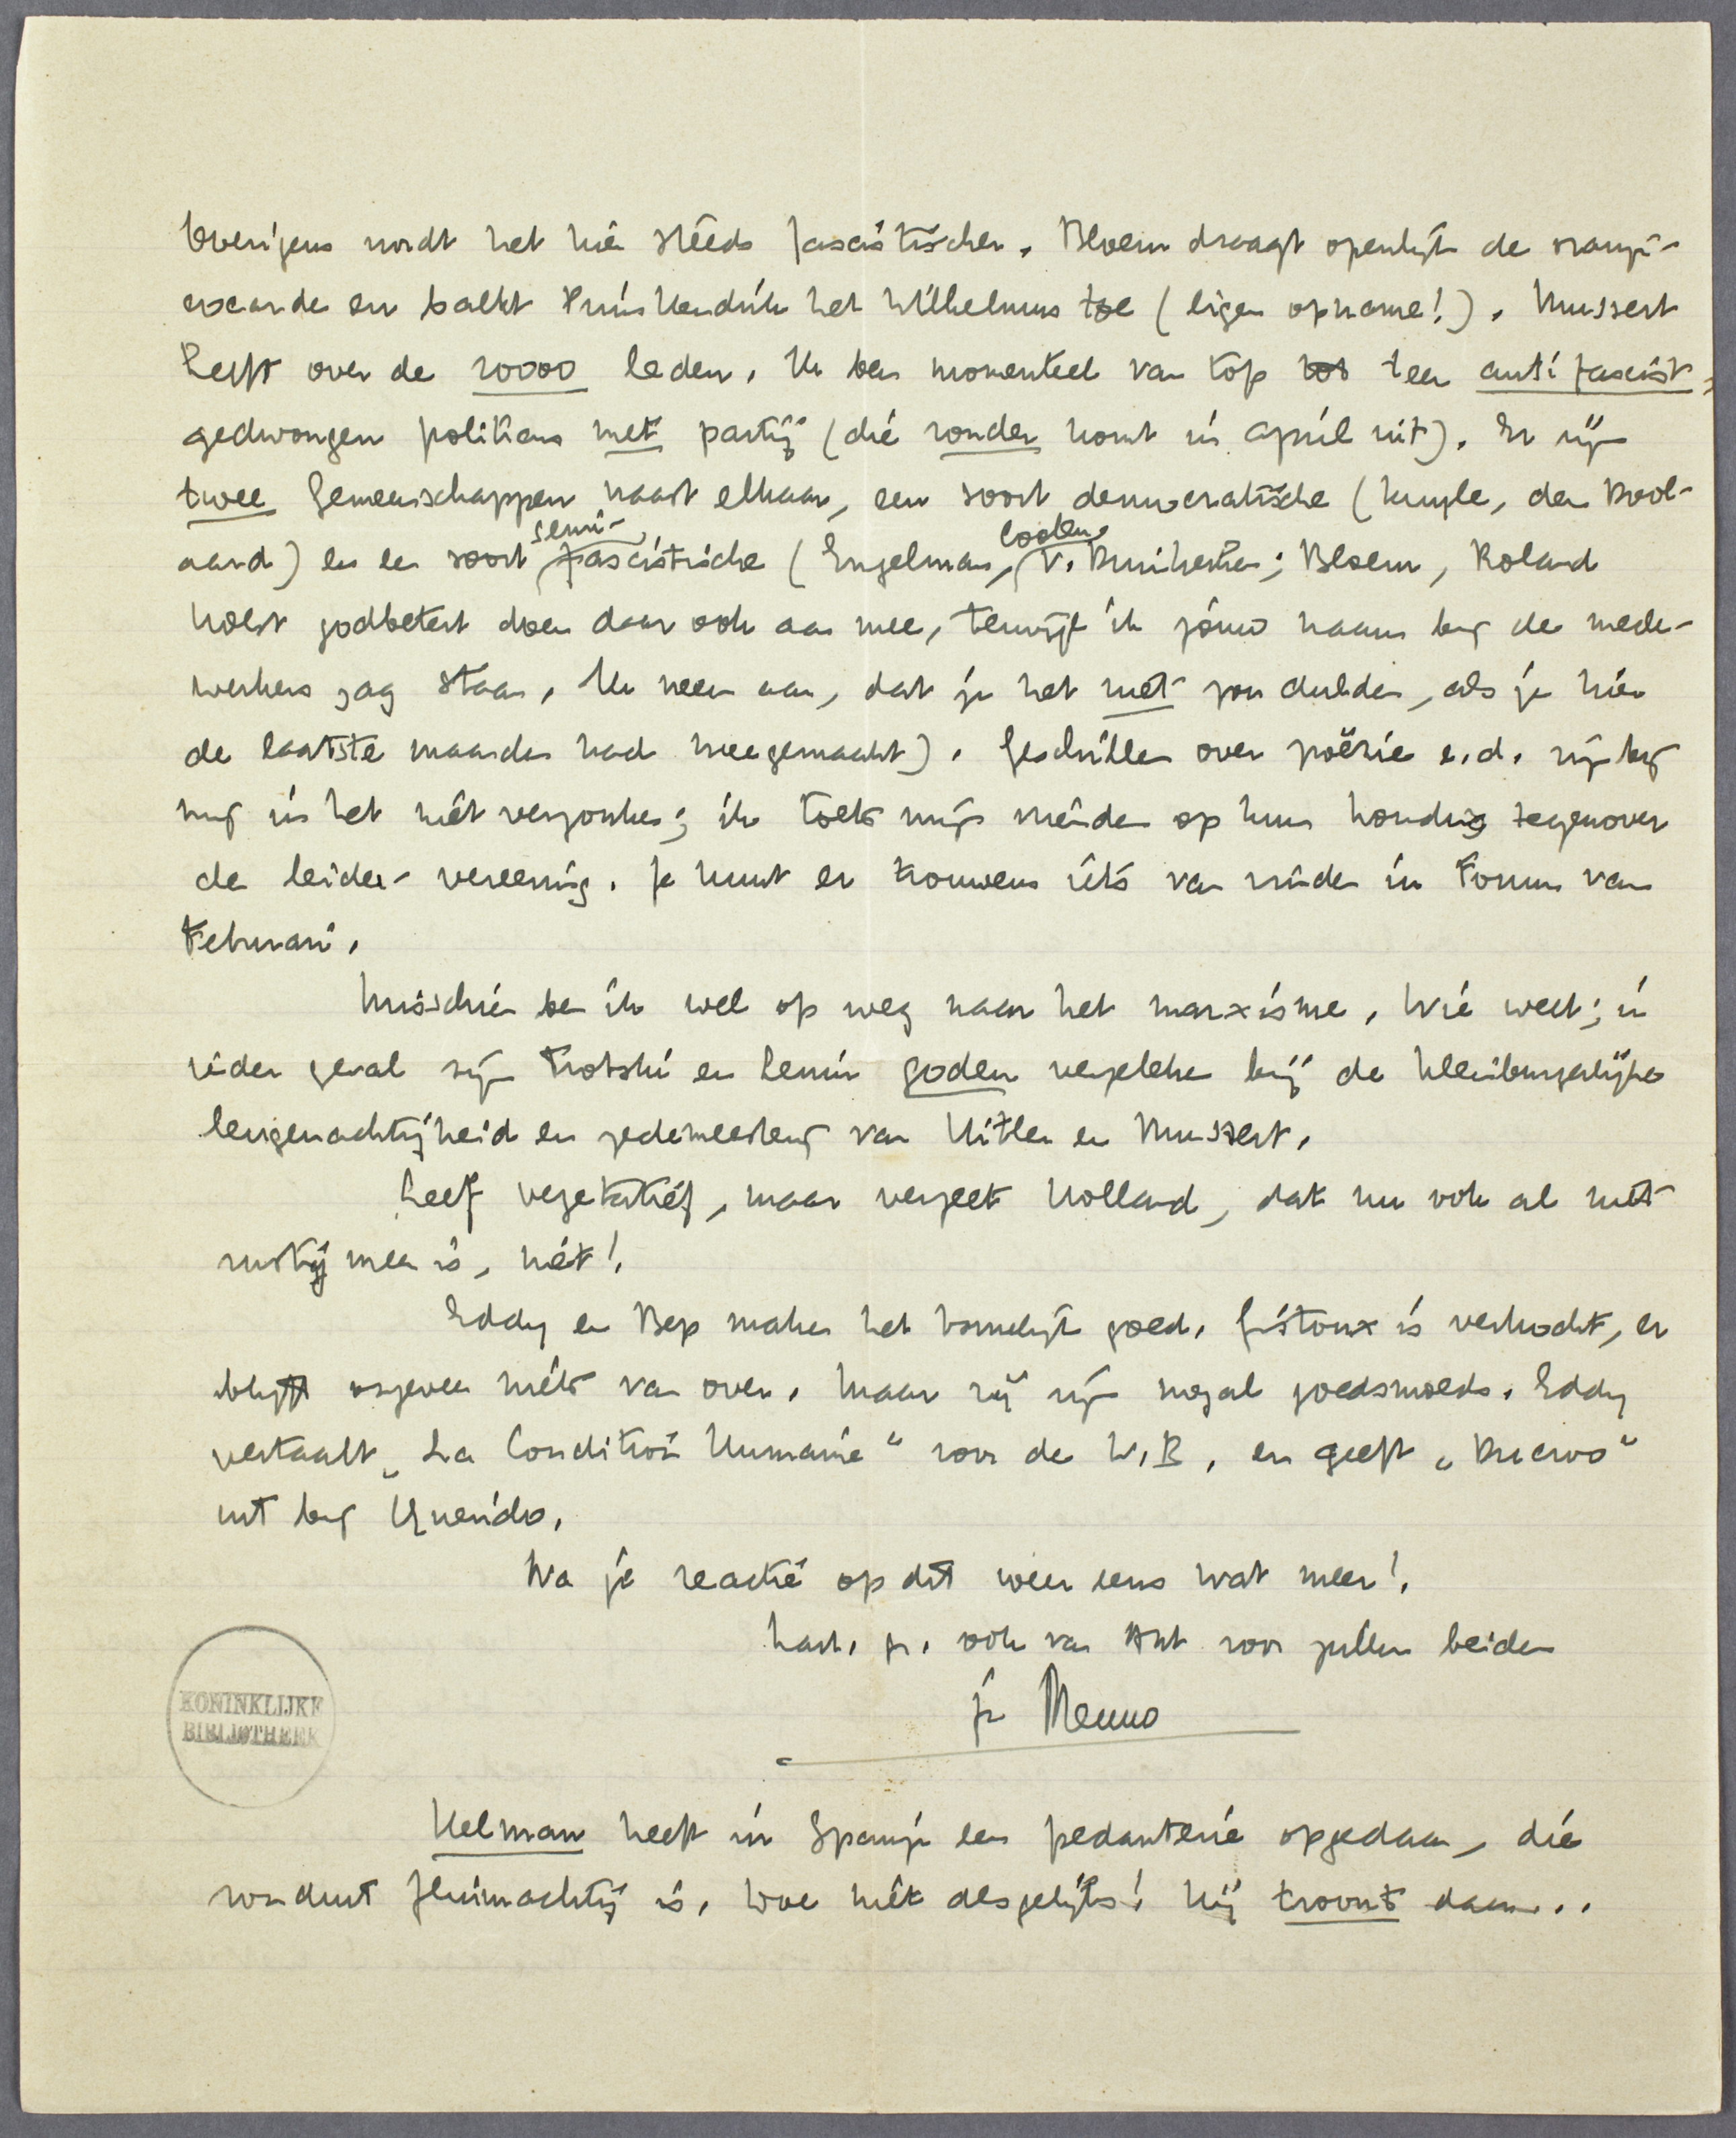 Overigens wordt het hier steeds fascistischer. Bloem draagt openlijk de oranje-
cocarde en balkt Prins Hendrik het Wilhelmus toe (eigen opname!). Mussert
heeft over de 20000 leden. Ik ben momenteel van top tot teen antifascist,
gedwongen politicus met partij (die zonder komt in april uit). Er zijn
twee Gemeenschappen naast elkaar, een soort democratische (Kuyle, den Dool-
aard) en een soort semi-fascistische (Engelman, Coolen, v. Duinkerken; Bloem, Roland
Holst godbetert doen daar ook aan mee, terwijl ik jóuw naam bij de mede-
werkers zag staan. Ik neem aan, dat je het niet zou dulden, als je hier
de laatste maanden had meegemaakt). Geschillen over poëzie e.d. zijn bij
mij in het niet verzonken; ik toets mijn vrienden op hun houding tegenover
de leiders-vereering. Je kunt er trouwens iets van vinden in Forum van
Februari.
Misschien ben ik wel op weg naar het marxisme. Wie weet; in
ieder geval zijn Trotski en Lenin goden vergeleken bij de kleinburgerlijke
leugenachtigheid en zedemeesterij van Hitler en Mussert.
Leef vegetatief, maar vergeet Holland, dat nu ook al niet
rustig meer is, niet!
Eddy en Bep maken het tamelijk goed. Gistoux is verkocht, er
blijft ongeveer niets van over. Maar zij zijn nogal goedsmoeds. Eddy
vertaalt „La Condition Humaine" voor de W.B. en geeft „Ducroo"
uit bij Querido.
Na je reactie op dit weer eens wat meer!
hart. gr. ook van Ant voor jullie beiden
je Menno
KONINKLIJKE
BIBLIOTHEEK
Helman heeft in Spanje een pedanterie opgedaan, die
ronduit fluimachtig is. Doe niet desgelijks! Hij troont daar...